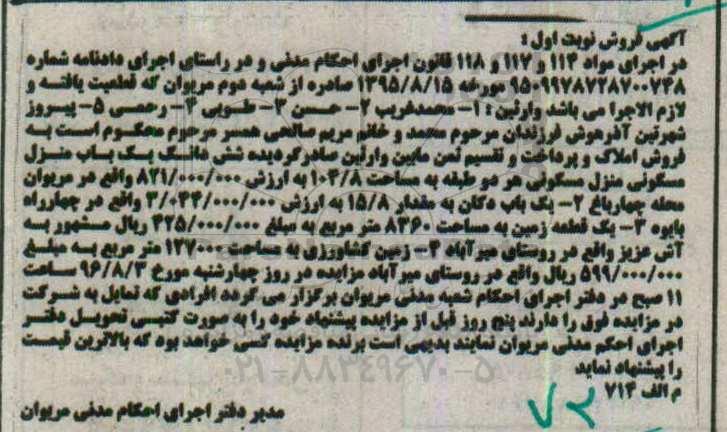 آگهی فروش نوبت اول :
در اجرای مواد ۱۱۴ و ۱۱۷ و ۱۱۸ قانون اجرای احکام مدنی و در راستای اجرای دادنامه شماره
۹۵۰۹۹۷۸۷۲۸۷۰۰۷۴۸ مورخه ۱۳۹۵/۸/۱۵ صادره از شعبه دوم مریوان که قطعیت یافته و
لازم الاجرا می باشد وارثین : ۱- محمدغریب ۲- حسن ۳- طوبی ۴- رحمی ۵- پیروز
شهرتین آذرهوش فرزندان مرحوم محمد و خانم مریم صالحی همسر مرحوم محکوم است به
فروش املاک و پرداخت و تقسیم ثمن مابین وارثین صادرگردیده شش دانگ یک باب منزل
مسکونی منزل مسکونی هر دو طبقه به مساحت ۱۰۴/۸ به ارزش ۸۲۱/۰۰۰/۰۰۰ واقع در مریوان
محله چهارباغ ۲- یک باب دکان به مقدار ۱۵/۸ به ارزش ۳/۰۴۴/۰۰۰/۰۰۰ واقع در چهارراه
بایوه ۳- یک قطعه زمین به مساحت ۸۳۶۰ متر مربع به مبلغ ۴۲۵/۰۰۰/۰۰۰ ریال مشهور به
آش عزیز واقع در روستای میرآباد ۴- زمین کشاورزی به مساحت ۱۲۷۰۰۰ متر مربع به مبلغ
۵۹۹/۰۰۰/۰۰۰ ریال واقع در روستای میرآباد مزایده در روز چهارشنبه مورخ ۹۶/۸/۳ ساعت
۱۱ صبح در دفتر اجرای احکام شعبه مدنی مریوان برگزار می گردد افرادی که تمایل به شرکت
در مزایده فوق را دارند پنج روز قبل از مزایده پیشنهاد خود را به صورت کتبی تحویل دفتر
اجرای احکم مدنی مریوان نمایند بدیهی است برنده مزایده کسی خواهد بود که بالاترین قیمت
را پیشنهاد نماید
۰۲۱-۸۸۳۴۹۶۷۰-۵
م الف ۷۱۴
مدیر دفتر اجرای احکام مدنی مریوان